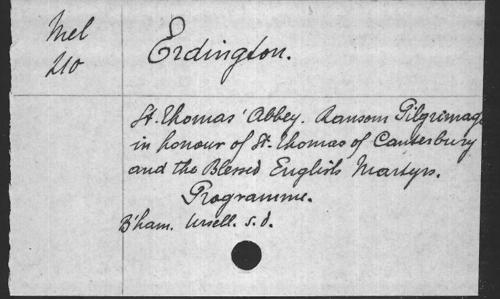 Mel
210
Erdington.
St. Thomas' Abbey. Ransom Pilgrimage
in honour of St. Thomas of Canterbury
and the Blessed English Martyrs.
Programme.
B'ham. Ursell. s.d.